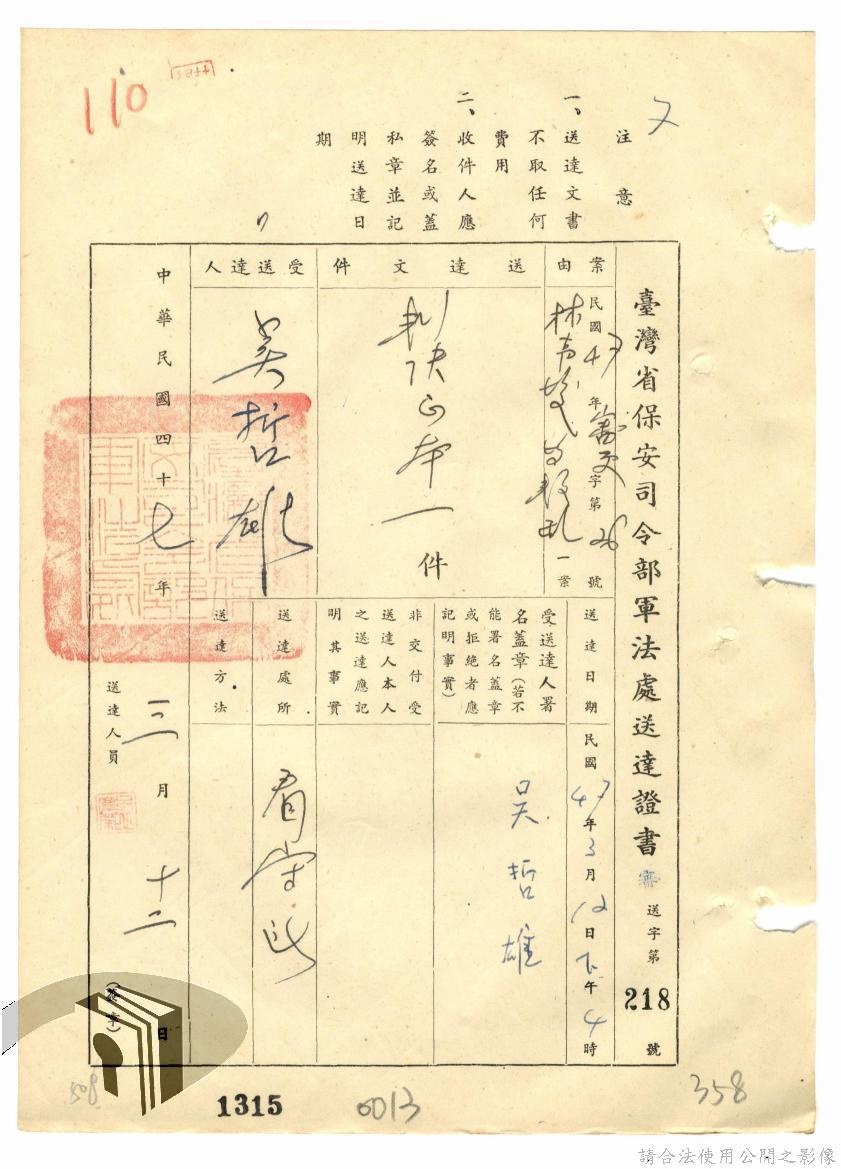 110
注意
一、送達文書
不取任何
費用
二、收件人應
簽名或蓋
私章並記
明送達日
期
臺灣省保安司令部軍法處送達證書 審 送字第218號
案由
民國47年審更字第26號
林 叛亂一案
送達文件
判決正本一件
受送達人
吳哲雄
送達日期
民國47年3月12日下午4時
受送達人署
名蓋章(若不
能署名蓋章
或拒絕者應
記明事實)
吳哲雄
非交付受
送達人本人
之送達應記
明其事實
送達處所
看守所
送達方法
中華民國四十七年三月十二日
送達人員
(簽章)
508
1315
0013
358
請合法使用公開之影像